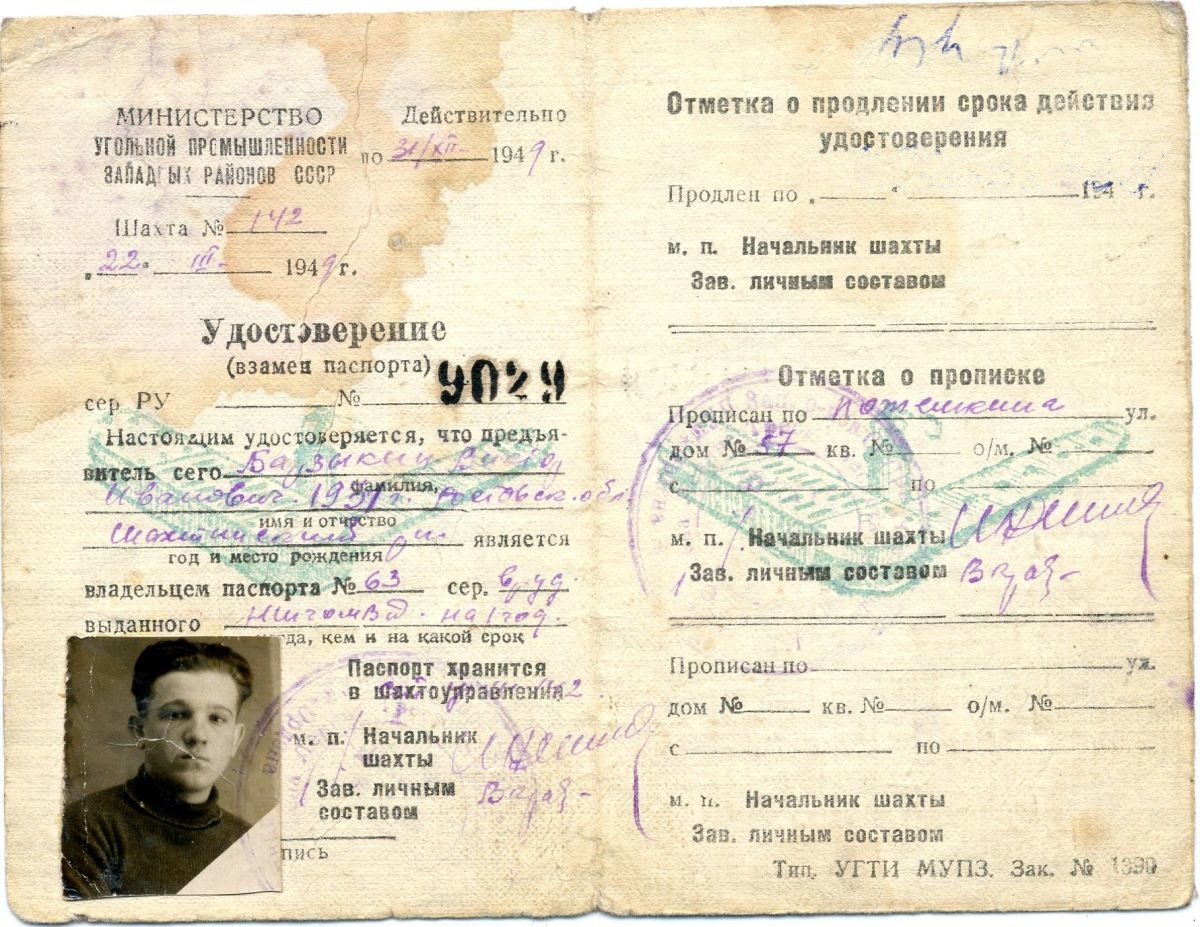 МИНИСТЕРСТВО
УГОЛЬНОЙ ПРОМЫШЛЕННОСТИ
ЗАПАДНЫХ РАЙОНОВ СССР
Действительно
по 31/XII- 1949 г.
Шахта № 142
„22“ III- 1949 г.
Удостоверение
(взамен паспорта)
сер. РУ № 9029
Настоящим удостоверяется, что предъя-
витель сего Базыкин Виктор
фамилия,
Иванович 1931 г. Ростовск. обл
имя и отчество
Шахтинский является
год и место рождения
владельцем паспорта № 63 сер.
выданного на 1 год.
когда, кем и на какой срок
Паспорт хранится
в шахтоуправлении
м. п. Начальник
шахты
Зав. личным
составом
пись
Отметка о продлении срока действия
удостоверения
Продлен по „ “ 194 г.
м. п. Начальник шахты
Зав. личным составом
Отметка о прописке
Прописан по Потемкина ул.
дом № 37 кв. № о/м. №
с по
м. п. Начальник шахты
Зав. личным составом
Прописан по ул.
дом № кв. № о/м. №
с по
м. п. Начальник шахты
Зав. личным составом
Тип. УГТИ МУПЗ. Зак. № 1390